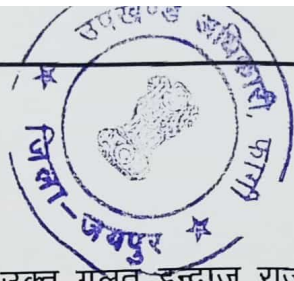 उपखण्ड अधिकारी, फागी
जिला-जयपुर
उक्त गलत इन्द्राज